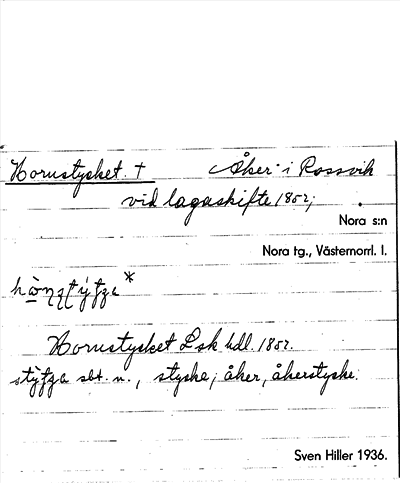 Hornstycket. † Åker i Rossvik
vid lagaskifte 1852;
Nora s:n
Nora tg., Västernorrl. l.
Hornstycket Lsk hdl. 1852.
sbt. n., stycke; åker, åkerstycke.
Sven Hiller 1936.